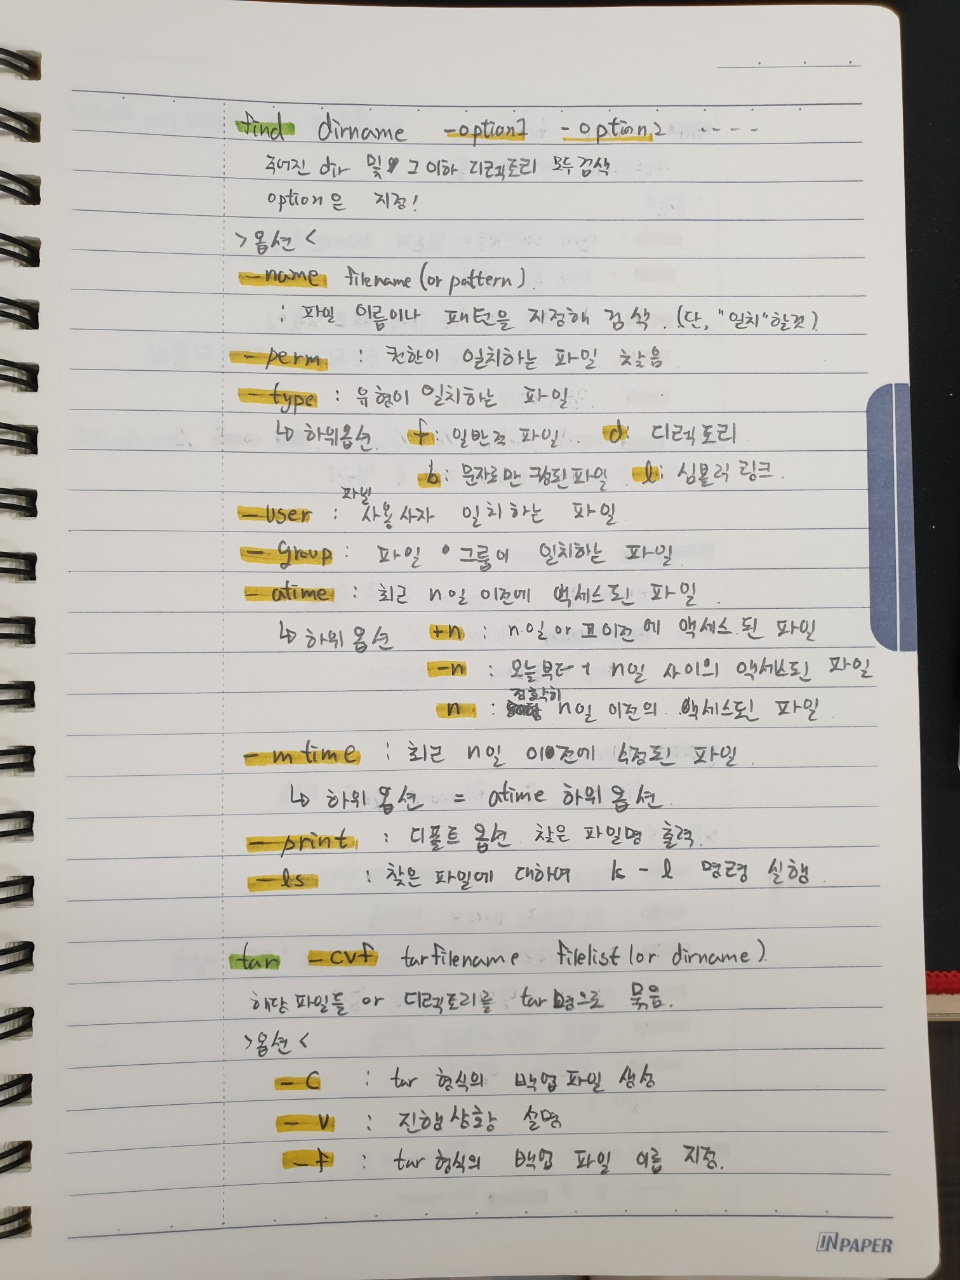 find dirname -option1 -option2 ----
주어진 dir 및 그 이하 디렉토리 모두 검색
option은 지정!
>옵션<
-name filename (or pattern)
: 파일 이름이나 패턴을 지정해 검색. (단, "일치"할것)
-perm : 권한이 일치하는 파일 찾음
-type : 유형이 일치하는 파일
↳ 하위옵션 f: 일반적 파일. d: 디렉토리
b: 문자로만 구성된 파일 l: 심볼릭 링크.
파일
-user : 사용사자 일치하는 파일
-group : 파일 그룹이 일치하는 파일
-atime : 최근 n일 이전에 액세스된 파일
↳ 하위 옵션 +n : n일 or 그 이전에 액세스 된 파일
-n : 오늘부터 n일 사이의 액세스된 파일
정확히
n : n일 이전의 액세스된 파일
-mtime : 최근 n일 이전에 수정된 파일
↳ 하위 옵션 = atime 하위 옵션
-print : 디폴트 옵션. 찾은 파일명 출력.
-ls : 찾은 파일에 대하여 ls -l 명령 실행
tar -cvf tarfilename filelist (or dirname)
해당 파일들 or 디렉토리를 tar 명으로 묶음.
>옵션<
-C : tar 형식의 백업 파일 생성
-v : 진행상황 설명
-f : tar 형식의 백업 파일 이름 지정.
INPAPER